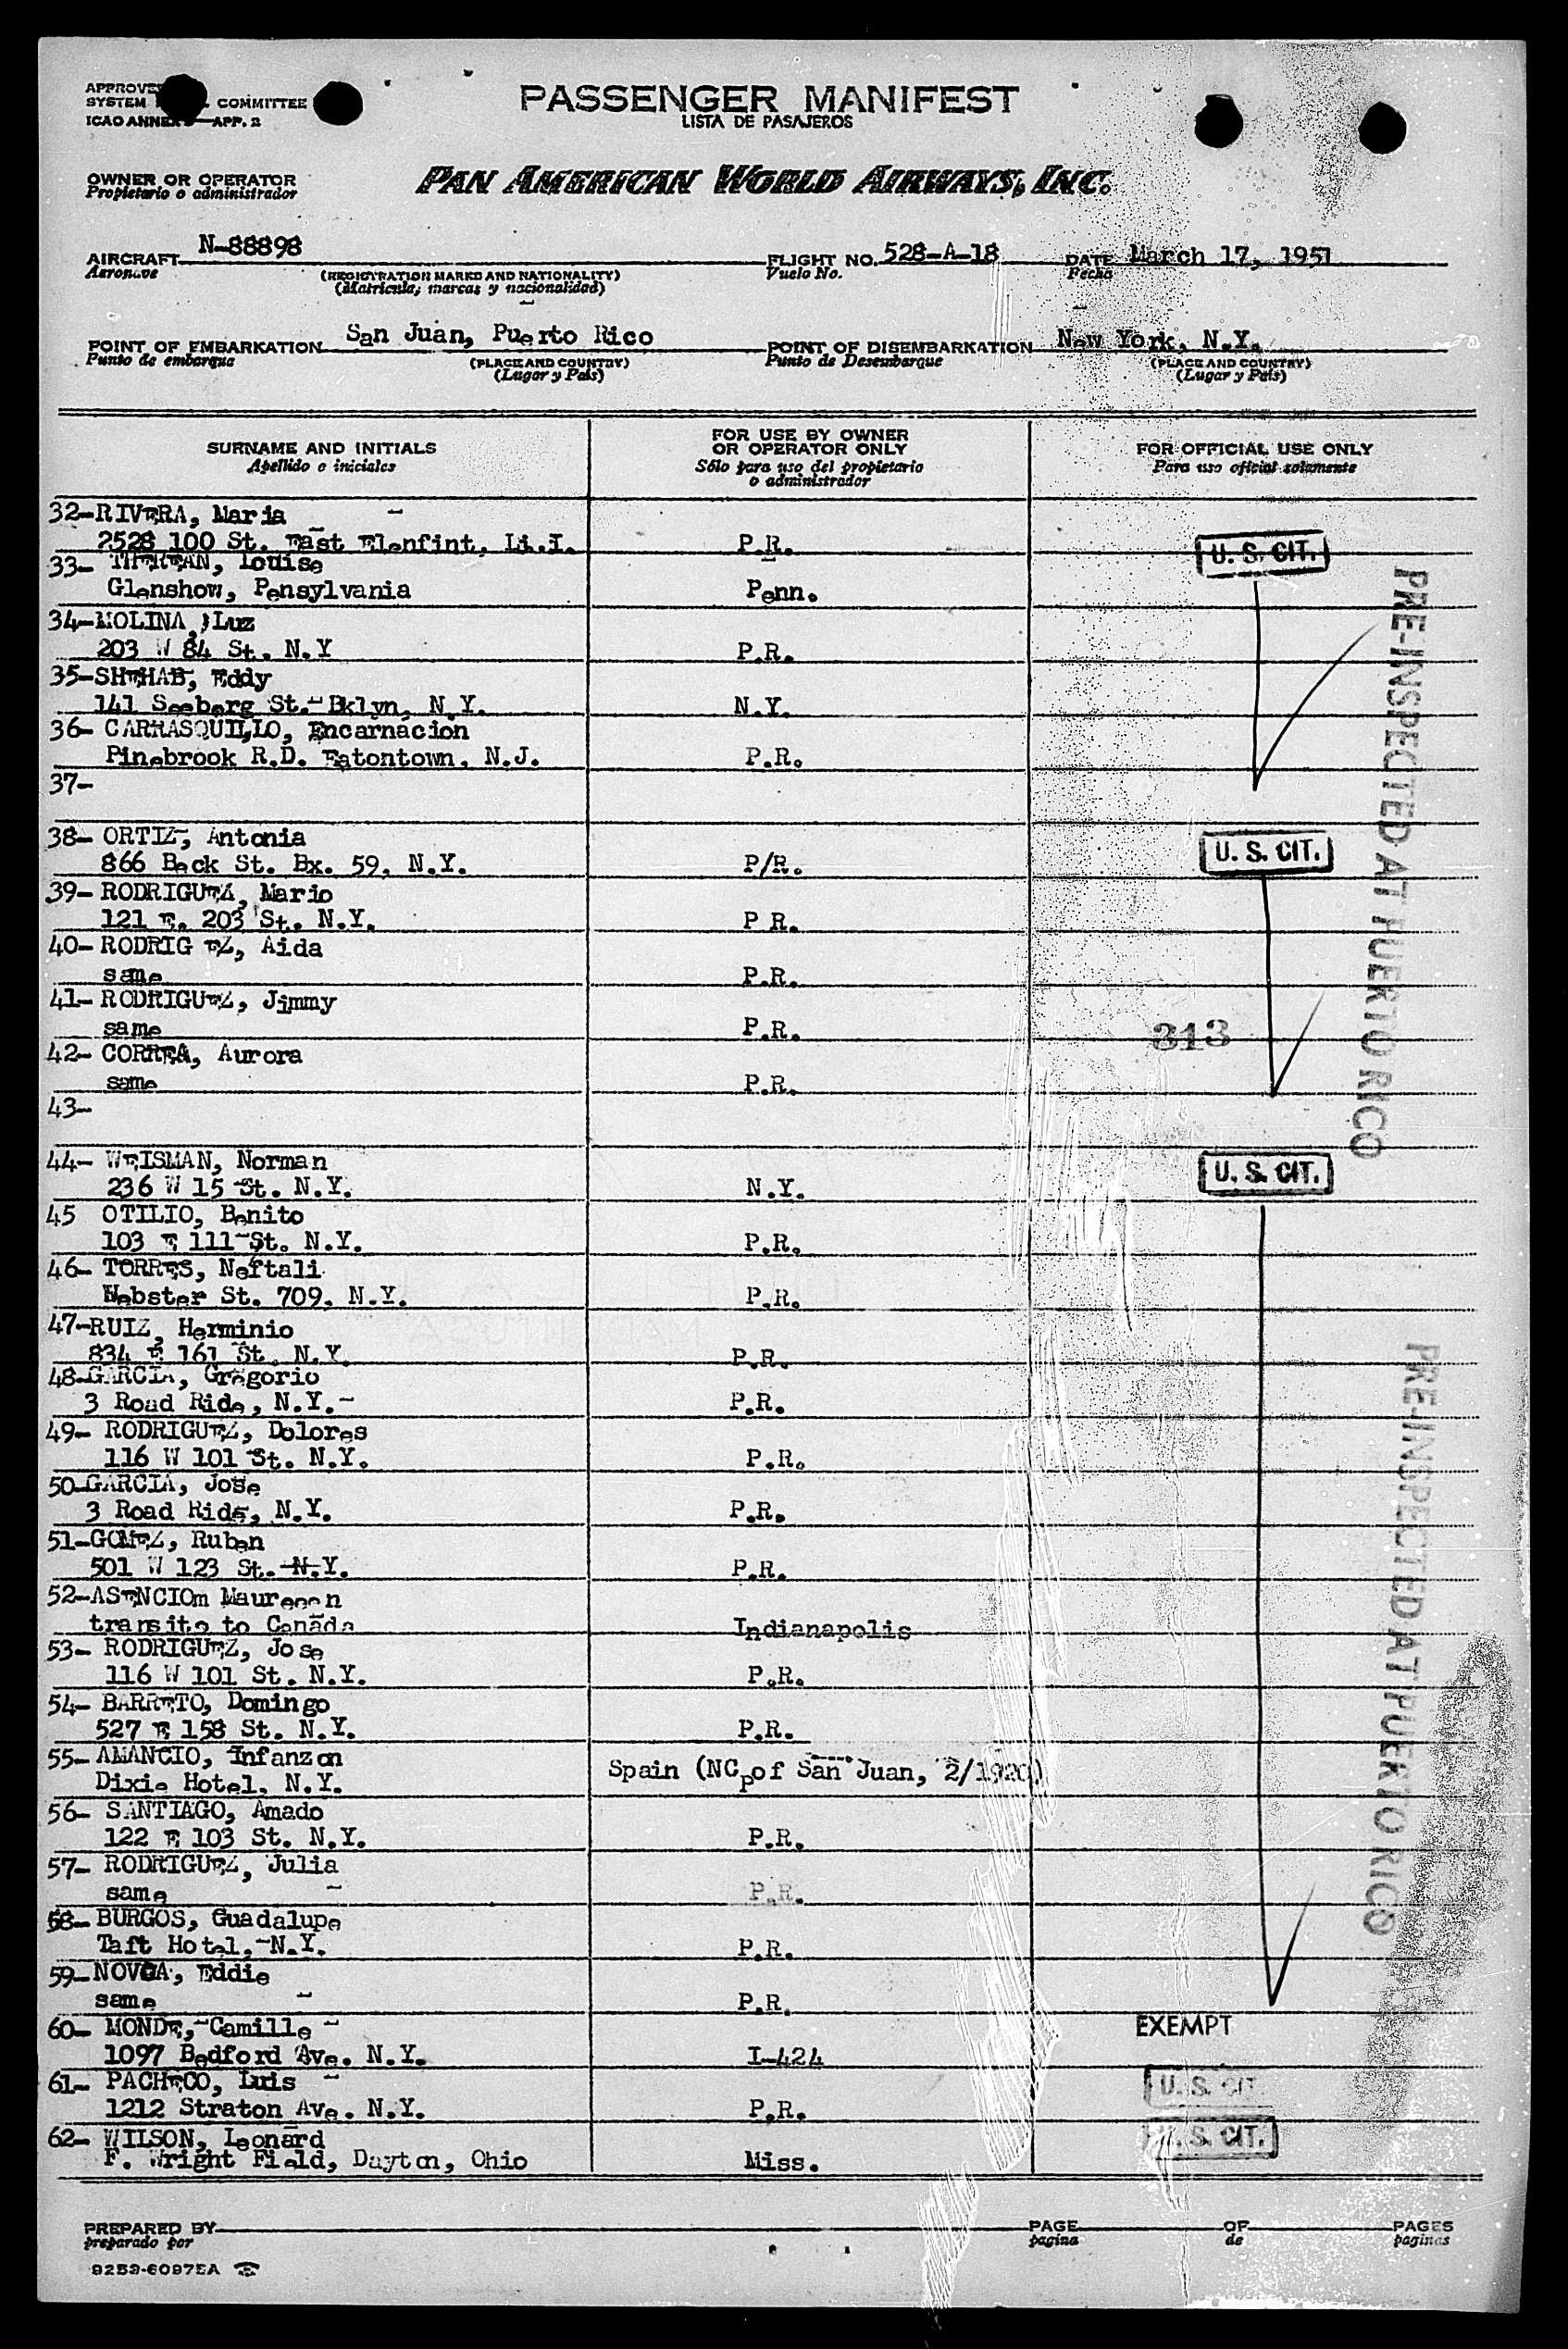 PASSENGER MANIFEST
LISTA DE PASAJEROS
SYSTEM COMMITTEE
ICAO ANNEX APP. 2
OWNER OR OPERATOR
Propietario o administrador
PAN AMERICAN WORLD AIRWAYS, INC.
AIRCRAFT N-88898 FLIGHT NO. 528-A-18 DATE March 17, 1951
Aeronave (REGISTRATION MARKS AND NATIONALITY) Vuelo No. Fecha
(Matricula, marcas y nacionalidad)
POINT OF EMBARKATION San Juan, Puerto Rico POINT OF DISEMBARKATION New York, N.Y.
Punto de embarque (PLACE AND COUNTRY) Punto de Desembarque (PLACE AND COUNTRY)
(Lugar y País) (Lugar y País)
SURNAME AND INITIALS
Apellido o iniciales
FOR USE BY OWNER
OR OPERATOR ONLY
Sólo para uso del propietario
o administrador
FOR OFFICIAL USE ONLY
Para uso oficial solamente
32-RIVERA, Maria
2528 100 St. East Elenfint, L.I. P.R. U. S. CIT.
33- Louise
Glenshow, Pensylvania Penn.
34-MOLINA, Luz
203 W 84 St. N.Y P.R.
35-SHEHAB, Eddy
141 Seeberg St. Bklyn, N.Y. N.Y.
36- CARRASQUILLO, Encarnacion
Pinebrook R.D. Eatontown, N.J. P.R.
37-
38- ORTIZ, Antonia
866 Beck St. Bx. 59, N.Y. P/R. U. S. CIT.
39- RODRIGUEZ, Mario
121 E. 203 St. N.Y. P R.
40- RODRIG EZ, Aida
same P.R.
41- RODRIGUEZ, Jimmy
same P.R.
313
42- CORREA, Aurora
same P.R.
43-
PRE-INSPECTED AT PUERTO RICO
44- WEISMAN, Norman
236 W 15 St. N.Y. N.Y. U. S. CIT.
45 OTILIO, Benito
103 E 111 St. N.Y. P.R.
46- TORRES, Neftali
Webster St. 709, N.Y. P.R.
47-RUIZ, Herminio
834 E 161 St. N.Y. P.R.
48-GARCIA, Gregorio
3 Road Ride, N.Y. P.R.
49- RODRIGUEZ, Dolores
116 W 101 St. N.Y. P.R.
50-GARCIA, Jose
3 Road Ride, N.Y. P.R.
51-GOMEZ, Ruben
501 W 123 St. N.Y. P.R.
52-ASENCIOm Maureeen
transito to Canada Indianapolis
53- RODRIGUEZ, Jose
116 W 101 St. N.Y. P.R.
54- BARRETO, Domingo
527 E 158 St. N.Y. P.R.
55- AMANCIO, Infanzon
Dixie Hotel, N.Y. Spain (NCpof San Juan, 2/1920)
56- SANTIAGO, Amado
122 E 103 St. N.Y. P.R.
57- RODRIGUEZ, Julia
same P.R.
58- BURGOS, Guadalupe
Taft Hotel, N.Y. P.R.
59-NOVOA, Eddie
same P.R.
PRE-INSPECTED AT PUERTO RICO
60- MONDE, Camille EXEMPT
1097 Bedford Ave. N.Y. I-424
61- PACHECO, Luis U. S. CIT.
1212 Straton Ave. N.Y. P.R.
62- WILSON, Leonard U. S. CIT.
F. Wright Field, Dayton, Ohio Miss.
PREPARED BY PAGE OF PAGES
preparado por pagina de paginas
9259-60975A